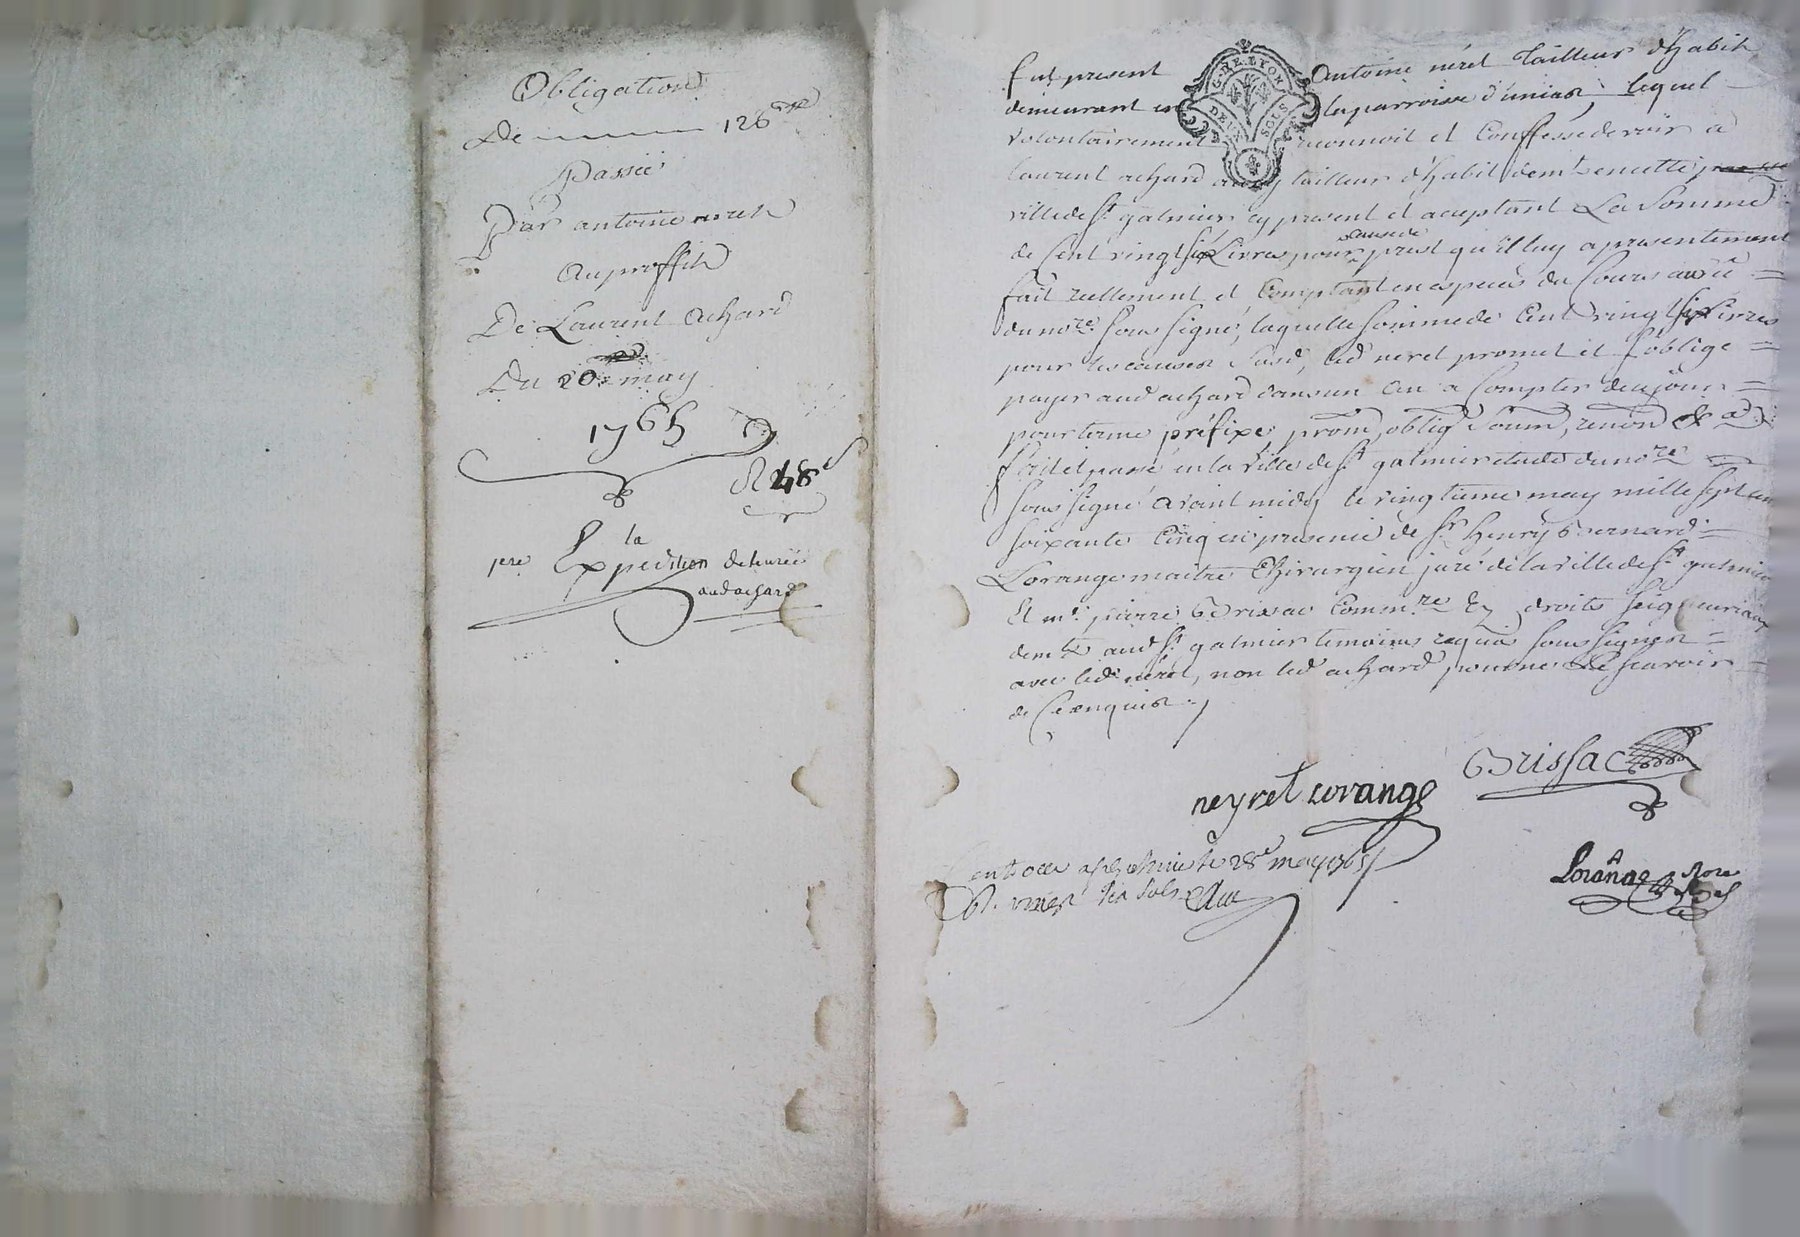 Obligation
De 126
Passée
Par antoine neret
Au proffit
De Laurent Achard
Du 20e may
1765
R 48s
1ere la Expedition delivrée
aud achard
G. DE LYON
DEUX SOLS
fut present Antoine néret Tailleur d'habit
demeurant en la parroisse d'unias, lequel
volontairement reconnoit et Confesse devoir a
laurent achard aussy tailleur d'habit demt en cette
ville de st galmier cy present et aceptant La Somme
de Cent vingt six Livres pour cause de prest qu'il luy a presentement
fait reellement et Comptant en especes du Cours a vüe
du nore sous signé, laquelle somme de Cent vingt six Livres
pour les causes susd, led neret promet et s'oblige
payer aud achard dans un An a Compter de ce jour
pour terme préfixe, prom, oblig, soum, renon & a
fait et passé en la ville de st galmier etude du nore
sous signé avant midy le vingtieme may mille sept cen
soixante Cinq en presence de sr henry Bernard
Lorange maitre Chirurgien juré de la ville de st galmier
Et mr pierre Brissac Commre Ez droits seigneuriaux
demts aud st galmier temoins requis sous signes
avec led neret, non led achard pour ne le scavoir
de Ce enquis
neyret Lorange Brissac
Controllé a st galmier le 28e may 1765
Lorange Nore